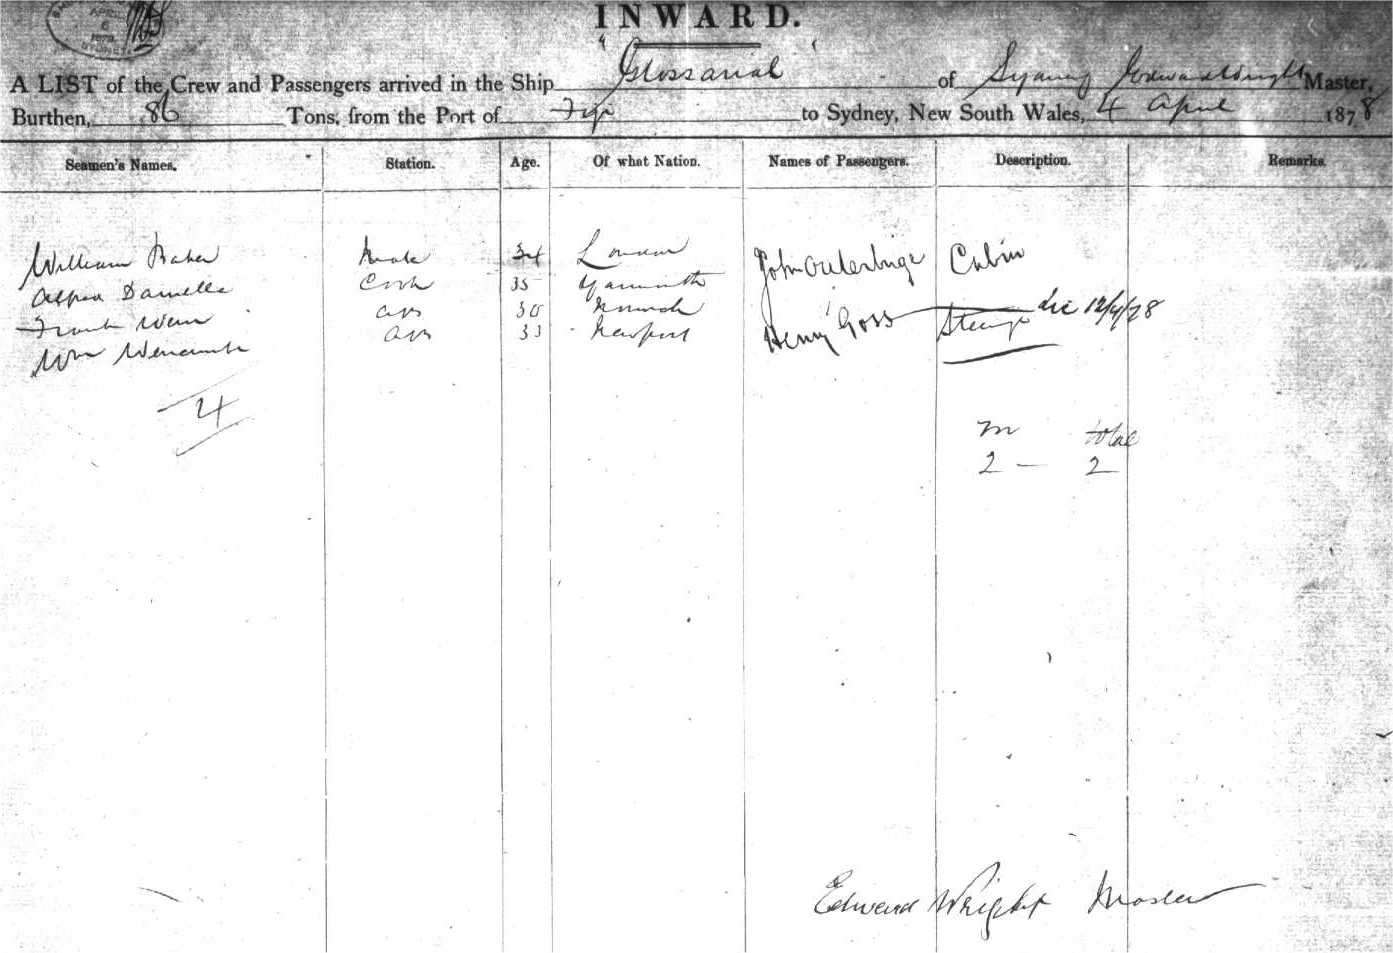 APRIL
6
1878
SYDNEY
INWARD.
A LIST of the Crew and Passengers arrived in the Ship "Glossarial" of Sydney Edward Wright Master,
Burthen, 86 Tons, from the Port of Fiji to Sydney, New South Wales, 4 April 1878
Seamen's Names. Station. Age. Of what Nation. Names of Passengers. Description. Remarks.
William Baker Mate 34 London John Outerbridge Cabin
Alfred Danielle Cook 35 Yarmouth
Frank AB 30 Norwich Henry Goss Steerage 12/4/78
Wm AB 33 Newport
4
M total
2 — 2
Edward Wright Master